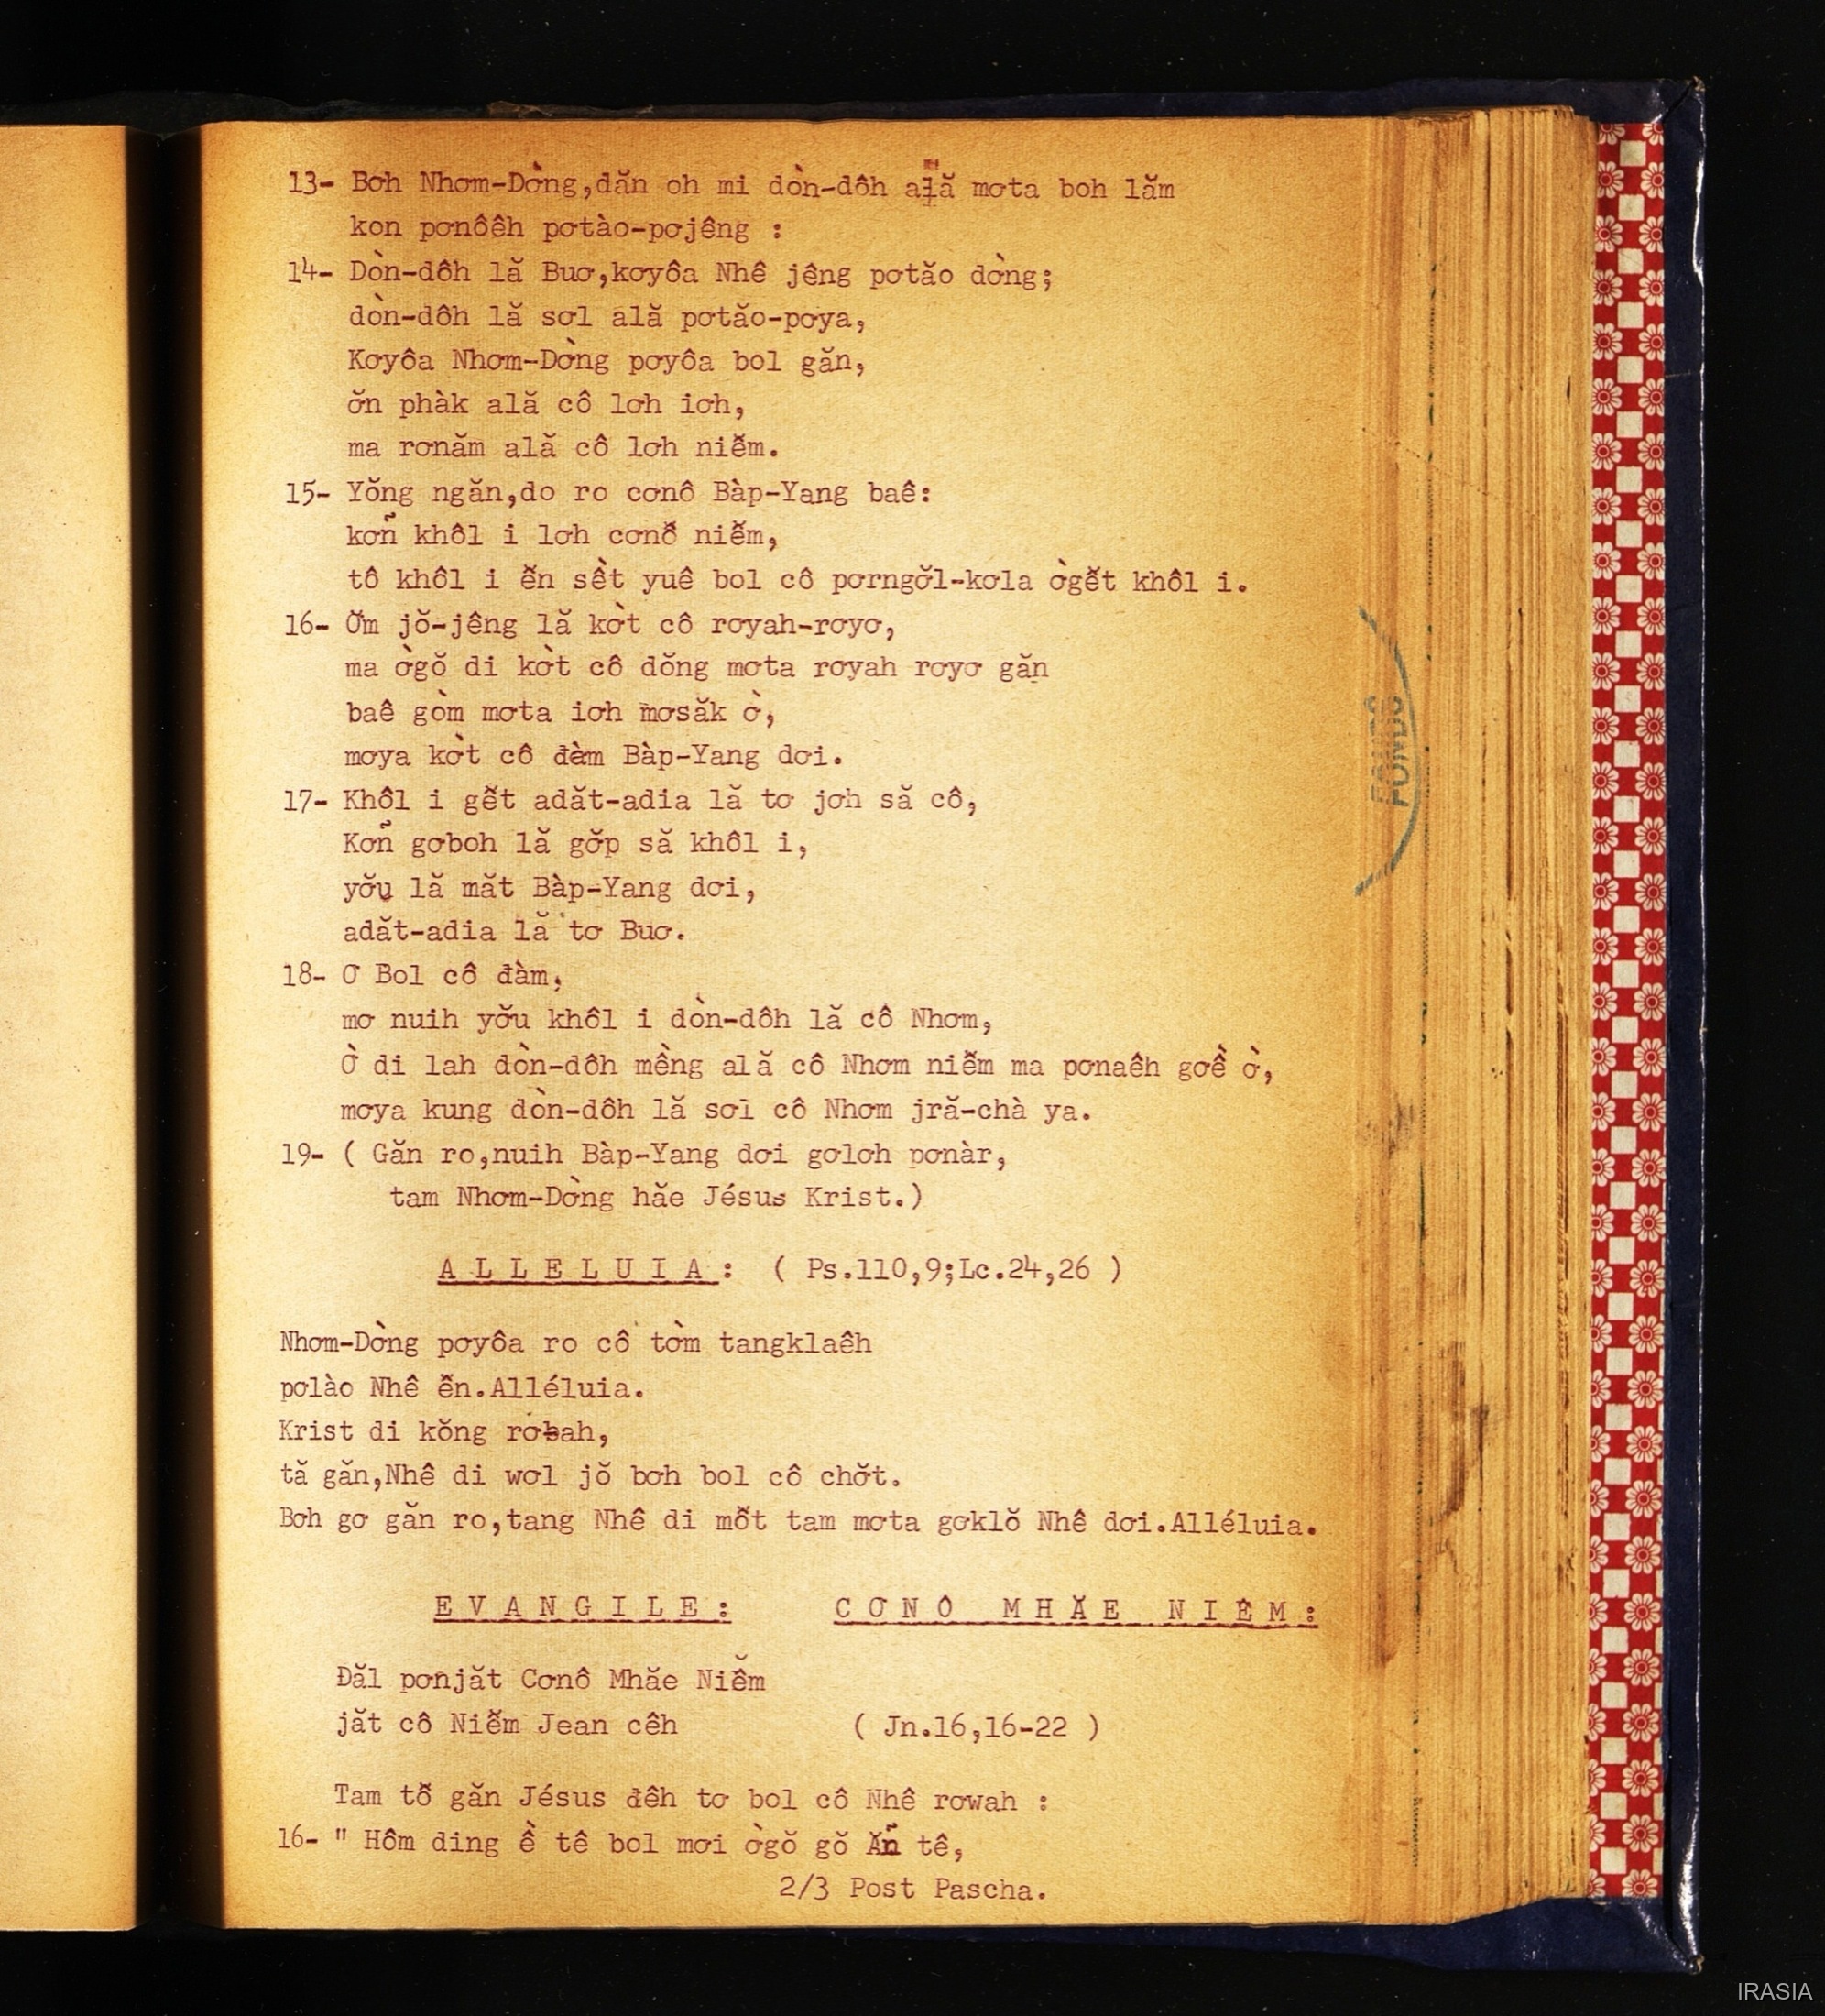 13- Bơh Nhơm-Dờng,dăn oh mi dòn-dôh ală mơta boh lăm
kon pơnôêh pơtào-pơjêng :
14- Dòn-dôh lă Buơ,kơyôa Nhê jêng pơtăo dờng;
dòn-dôh lă sơl ală pơtăo-pơya,
Kơyôa Nhơm-Dờng pơyôa bol găn,
ơ̆n phàk ală cô lơh iơh,
ma rơnăm ală cô lơh niê̆m.
15- Yŏng ngăn,do ro cơnô Bàp-Yang baê:
kơñ khôl i lơh cơnô̆ niê̆m,
tô khôl i ê̆n sềt yuê bol cô pơrngơ̆l-kơla ờgê̆t khôl i.
16- Ơ̆m jŏ-jêng lă kờt cô rơyah-rơyơ,
ma ờgŏ di kờt cô dŏng mơta rơyah rơyơ găn
baê gòm mơta iơh mơsăk ờ,
mơya kờt cô đàm Bàp-Yang dơi.
17- Khôl i gê̆t adăt-adia lă tơ jơh să cô,
Kơñ gơboh lă gơ̆p să khôl i,
yơ̆u lă măt Bàp-Yang dơi,
adăt-adia lă tơ Buơ.
18- Ơ Bol cô đàm,
mơ nuih yơ̆u khôl i dòn-dôh lă cô Nhơm,
Ờ di lah dòn-dôh mềng ală cô Nhơm niê̆m ma pơnaêh gơề ờ,
mơya kung dòn-dôh lă sơl cô Nhơm jră-chà ya.
19- ( Găn ro,nuih Bàp-Yang dơi gơlơh pơnàr,
tam Nhơm-Dờng hăe Jésus Krist.)
A L L E L U I A : ( Ps.110,9;Lc.24,26 )
Nhơm-Dờng pơyôa ro cô tờm tangklaêh
pơlào Nhê ê̆n.Alléluia.
Krist di kŏng rơbah,
tă găn,Nhê di wơl jŏ bơh bol cô chơ̆t.
Bơh gơ găn ro,tang Nhê di mô̆t tam mơta gơklŏ Nhê dơi.Alléluia.
E V A N G I L E : C Ơ N Ô M H Ă E N I Ê̆ M :
Đăl pơnjăt Cơnô Mhăe Niê̆m
jăt cô Niê̆m Jean cêh ( Jn.16,16-22 )
Tam tô̆ găn Jésus đêh tơ bol cô Nhê rơwah :
16- " Hôm ding ề tê bol mơi ờgŏ gŏ Ăñ tê,
2/3 Post Pascha.
FONDS
IRASIA